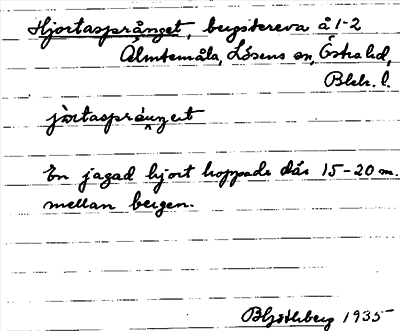 Hjortasprånget, bergstereva å 1-2
Almtemåla, Lösens sn, Östra hd,
Blek. l.
jòrtaspráŋet
En jagad hjort hoppade där 15-20 m.
mellan bergen.
B Hjöthberg 1935